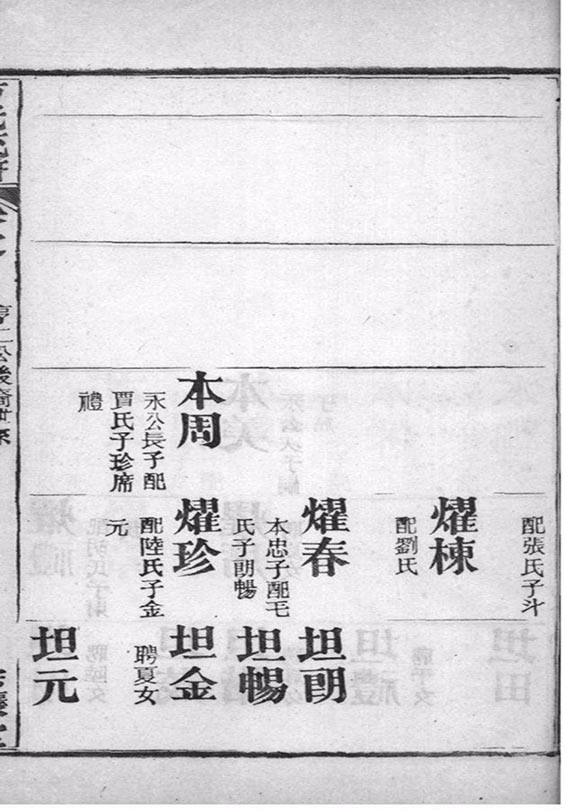 本周
永公長子配
賈氏子珍席
禮
配張氏子斗
燿棟
配劉氏
燿春
本忠子配毛
氏子朗暢
燿珍
配陸氏子金
元
坦朗
坦暢
坦金
聘夏女
坦元
公後裔世系